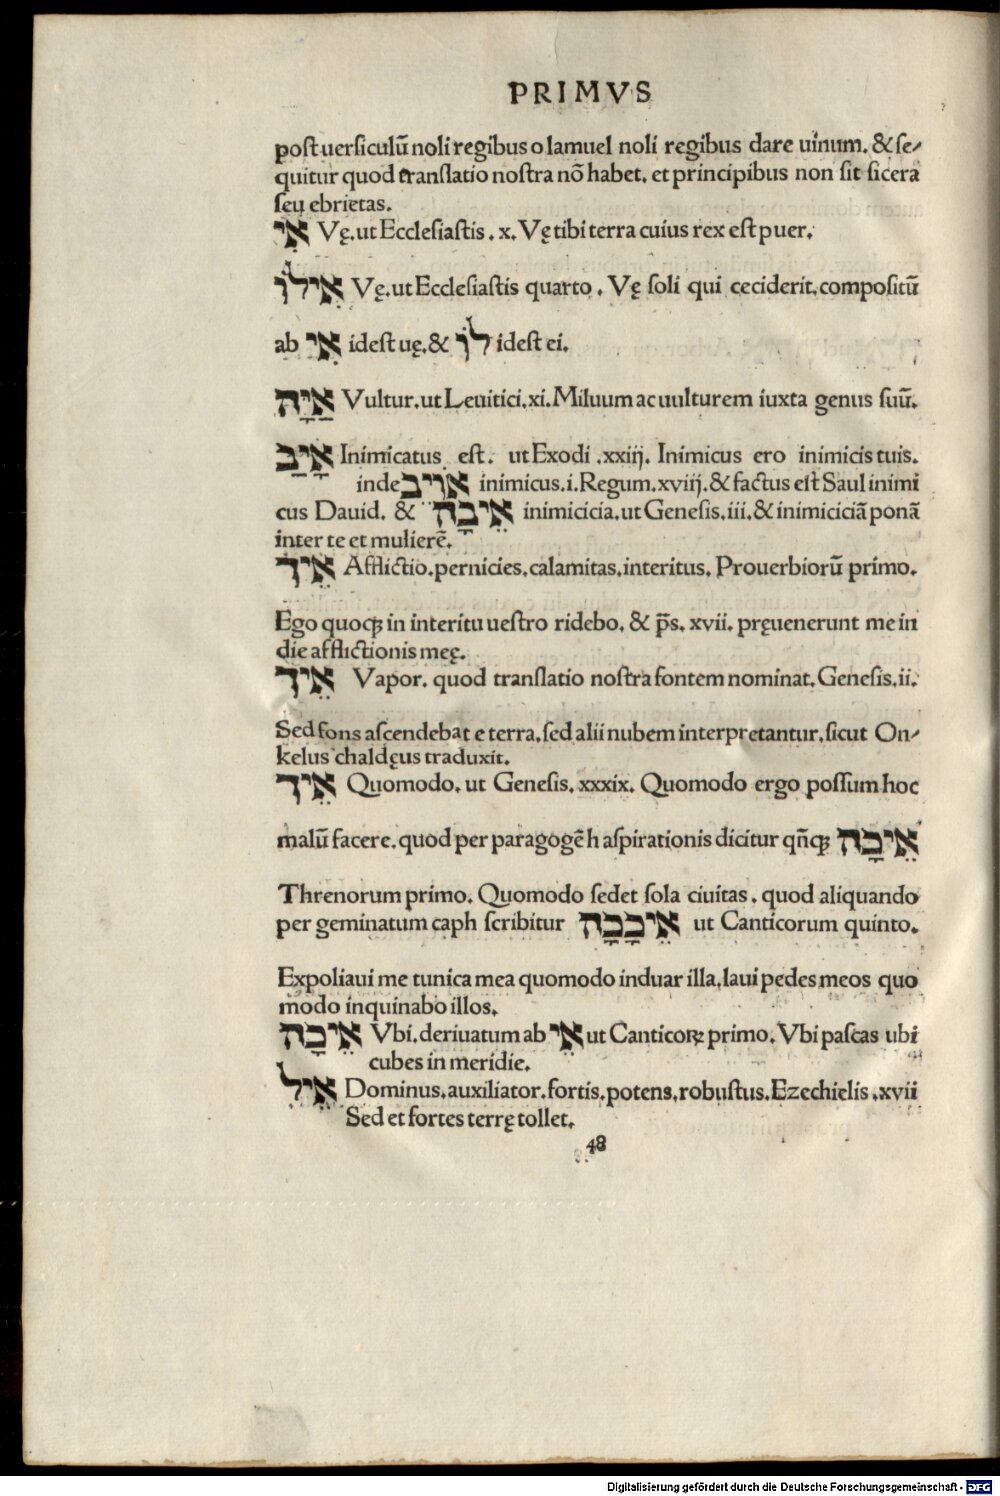 PRIMVS
poſt uerſiculū noli regibus o lamuel noli regibus dare uinum. & ſe-
quitur quod tranſlatio noſtra nō habet. et principibus non ſit ſicera
ſeu ebrietas.
אִי Vę. ut Eccleſiaſtis . x. Vę tibi terra cuius rex eſt puer.
אִילוֹ Vę. ut Eccleſiaſtis quarto . Vę ſoli qui ceciderit. compoſitū
ab אִי ideſt uę. & לוֹ ideſt ei.
אַיָּה Vultur. ut Leuitici. xi. Miluum ac uulturem iuxta genus ſuū.
אָיַב Inimicatus eſt. ut Exodi .xxiij. Inimicus ero inimicis tuis.
inde אוֹיֵב inimicus. i. Regum. xviij. & factus eſt Saul inimi
cus Dauid. & אֵיבָה inimicicia. ut Geneſis. iii. & inimiciciā ponā
inter te et mulierē.
אֵיד Afflictio. pernicies. calamitas. interitus. Prouerbiorū primo.
Ego quoqꝫ in interitu ueſtro ridebo. & p̄s. xvii. pręuenerunt me in
die afflictionis meę.
אֵיד Vapor. quod tranſlatio noſtra fontem nominat. Geneſis. ii.
Sed fons aſcendebat e terra. ſed alii nubem interpretantur. ſicut On-
kelus chaldęus traduxit.
אֵיךְ Quomodo. ut Geneſis. xxxix. Quomodo ergo poſſum hoc
malū facere. quod per paragogē h aſpirationis dicitur qñqꝫ אֵיכָה
Threnorum primo. Quomodo ſedet ſola ciuitas . quod aliquando
per geminatum caph ſcribitur אֵיכָכָה ut Canticorum quinto.
Expoliaui me tunica mea quomodo induar illa. laui pedes meos quo
modo inquinabo illos.
אֵיכָה Vbi. deriuatum ab אֵי ut Canticoꝝ primo. Vbi paſcas ubi
cubes in meridie.
אֵיל Dominus. auxiliator. fortis. potens. robuſtus. Ezechielis .xvii
Sed et fortes terrę tollet.
48
Digitalisierung gefördert durch die Deutsche Forschungsgemeinschaft - DFG